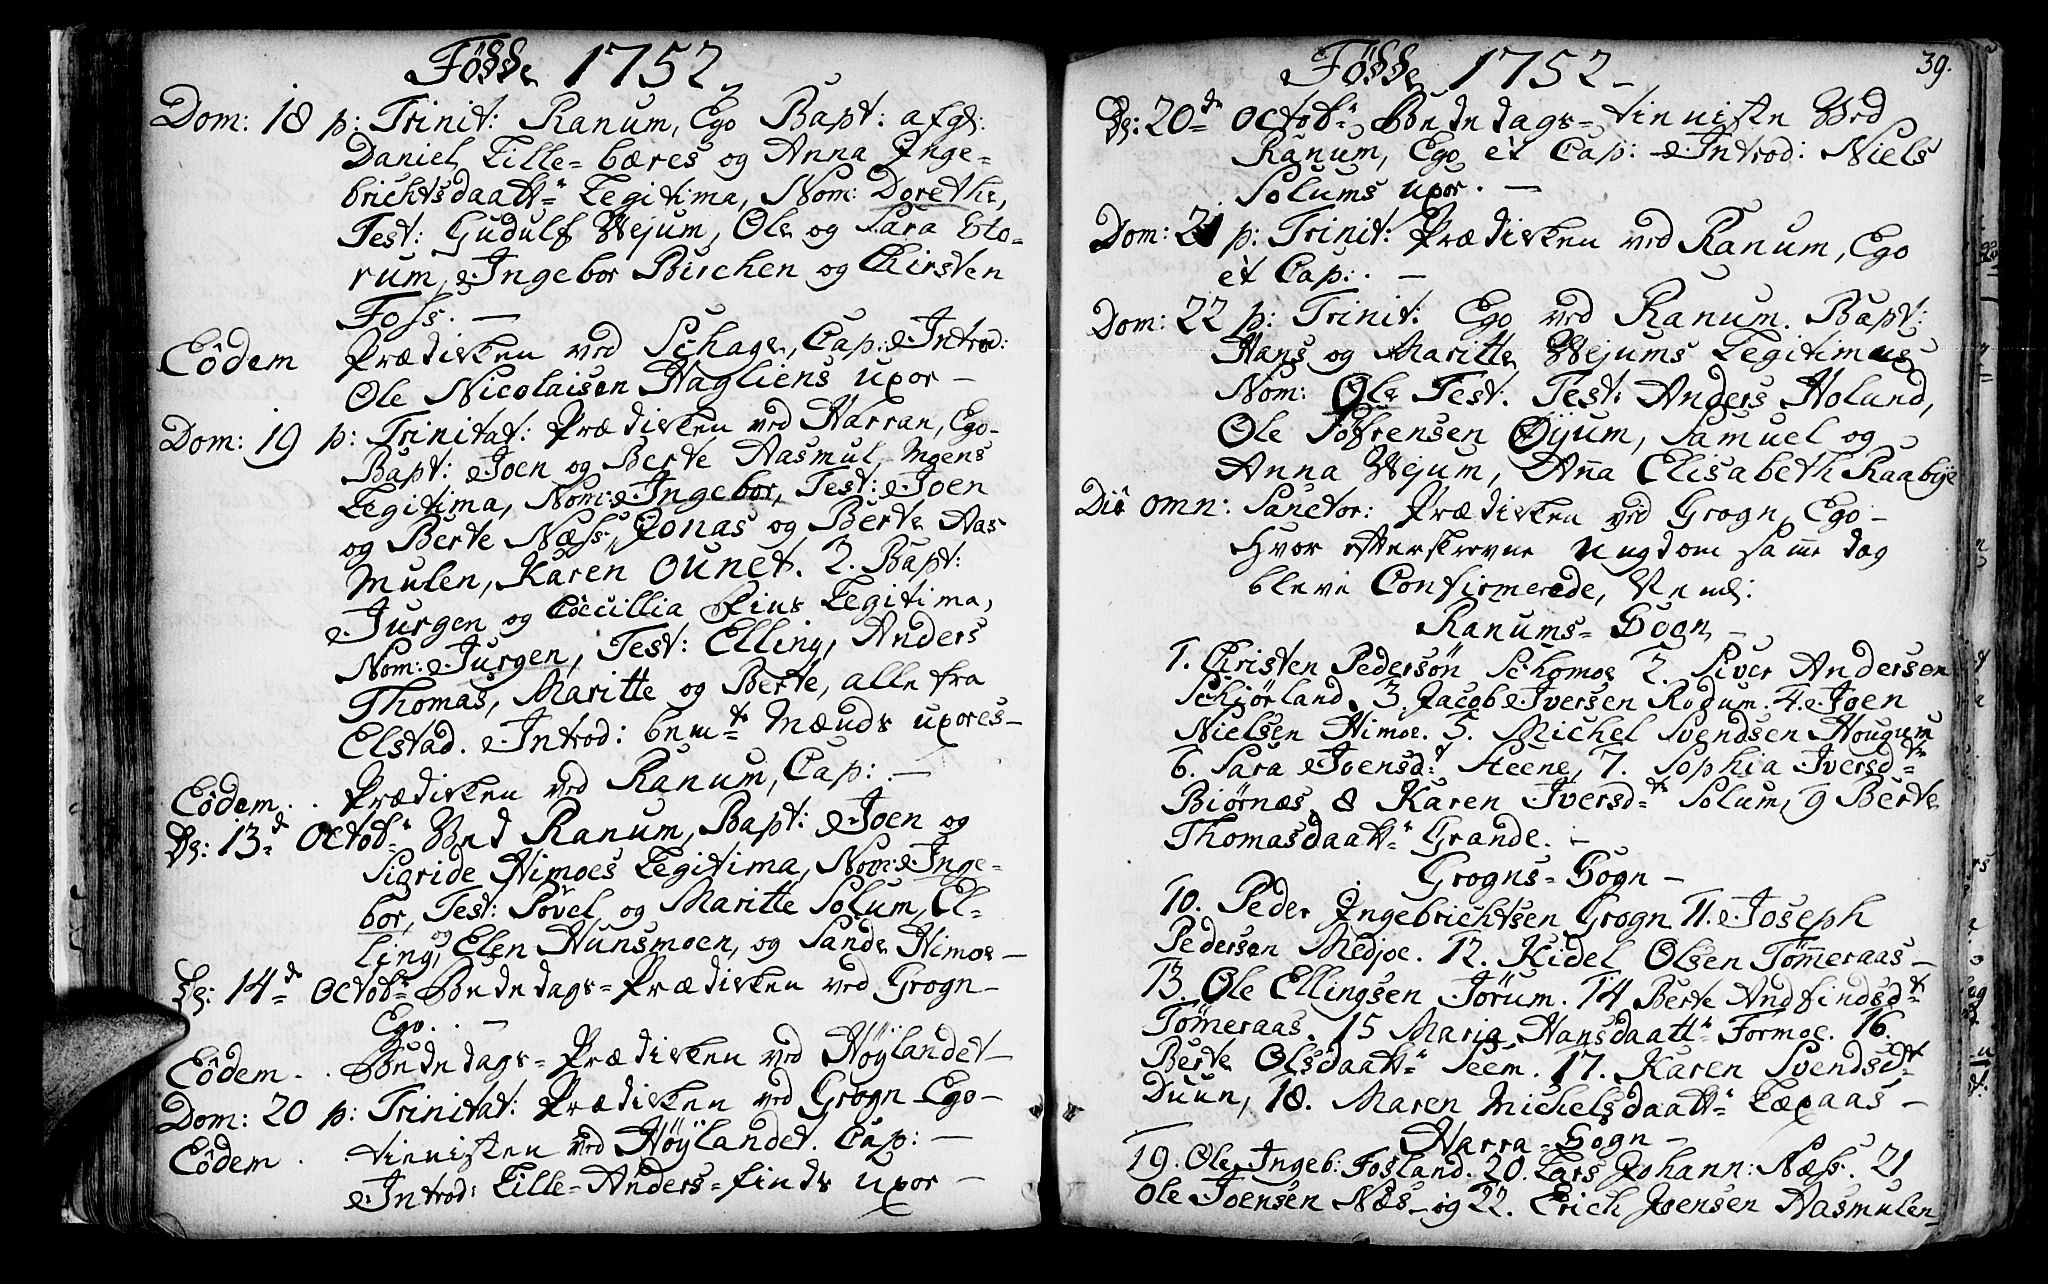 Födde 1752
Dom: 18 p: Trinit: Ranum, Ego Bapt: afg:
Daniel Lille-bæres og Anna Inge-
brichtsdaatt: Legitima, Nom: Dorethe,
Test: Gudulf Wejum, Ole og Sara Sto-
rum, Ingebor Birchen og Chirsten
Foss. -
Eôdem Prædicken ved Schage, Cap: Introd:
Ole Nicolaisen Hagliens uxor -
Dom: 19 p: Trinitat: Prædicken ved Harran, Ego-
Bapt: Joen og Berte Aasmul, Mgens
Legitima, Nom: Ingebor, Test: Joen
og Berte Næss, Jonas og Berte Aas
mulen, Karen Ounet. 2. Bapt:
Jurgen og Coecillia Legitima,
Nom: Jurgen, Test: Elling, Anders
Thomas, Maritte og Berte, alle fra
Elstad. Introd: bem:te Mænds uxores-
Eôdem . . Prædicken ved Ranum, Cap: -
D: 13:d Octob: Ved Ranum, Bapt: Joen og
Sigride Himoes Legitima, Nom: Inge-
bor, Test: Povel og Maritte Solum, El-
ling, og Elen Hunsmoen, og Sande Himoe-
D: 14:de Octob: Bøndedags-Prædicken ved Grogn-
Ego. . -
Eôdem . . Bøndedags-Prædicken ved Höÿlandet-
Dom: 20 p: Trinitat: Prædicken ved Grogn Ego-
Eôdem . tienisten ved Höÿlandet. Cap: -
Introd: Lille-Anders-finds uxor -
Födde 1752-
39.
D: 20:de Octob: Bøndedags-tienisten Ved
Ranum, Ego et Cap: Introd: Niels
Solums uxor. -
Dom: 21 p: Trinit: Prædicken ved Ranum, Ego
et Cap: . -
Dom: 22 p: Trinit: Ego ved Ranum. Bapt:
Hans og Maritte Wejums Legitimus
Nom: Ole Test. Test: Anders Holund,
Ole Tofrensen Øijum, Samuel og
Anna Wejum, Anna Elisabeth Raabÿe
Die omn: Sanctor: Prædicken ved Grogn, Ego-
hvor efterskrevne Ungdom samme dag
bleve Confirmerede, Nemd:
Ranums-Sogn, -
1. Christen Pedersøn Schomoe 2. Siver Andersen
Schiørland. 3. Jacob Iversen Rodum. 4. Joen
Nielsen Himoe. 5. Michel Svendsen Hougum
6. Sara Joensd:t Steene, 7. Sophia Iversd:tr
Biørnæs, 8 Karen Iversd:tr Solum, 9 Berte
Thomasdaatt: Grande. -
Grogns-Sogn -
10. Peder Ingebrichtsen Grogn 11. Joseph
Pedersen Medjoe. 12. Kidel Olsen Tømeraas -
13. Ole Ellingsen Jørum. 14 Berte Andfindsd:t
Tømeraas. 15 Maria Hansdaatt: Formoe. 16.
Berte Olsdaatt: Seem. 17. Karen Svendsd:t
Duun, 18. Maren Michelsdaatt: Læxaas -
Harra-Sogn -
19. Ole Ingeb: Fosland. 20. Lars Johann: Næss. 21
Ole Joensen Næs- og 22. Erich Joensen Aasmulen-